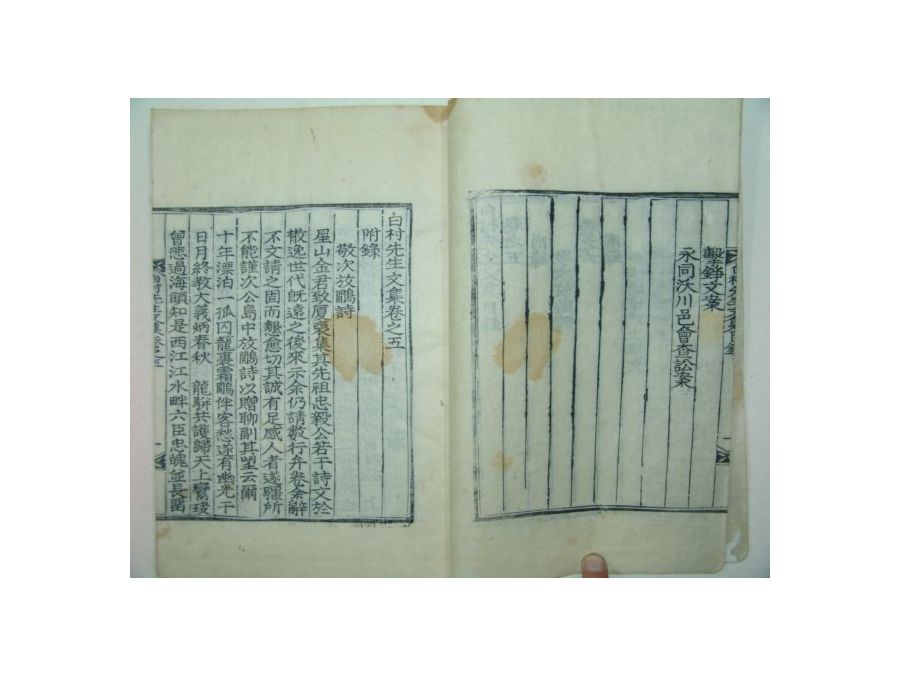 擊錚文案
永同沃川邑會査訟案
白村先生文集卷之五
附錄
敬次放鷳詩
星山金君致厦裒集其先祖忠毅公若干詩文於
散逸世代旣遠之後來示余仍請數行弁卷余辭
不文請之固而懇愈切其誠有足感人者遂驅所
不能謹次公島中放鷳詩以贈聊副其望云爾
十年漂泊一孤囚籠裏霜鷳伴客愁遂有幽光干
日月終敎大義炳春秋 龍駢共護歸天上鸞
曾悲過海頭知是西江江水畔六臣忠魄並長留
白村先生文集卷之五
一